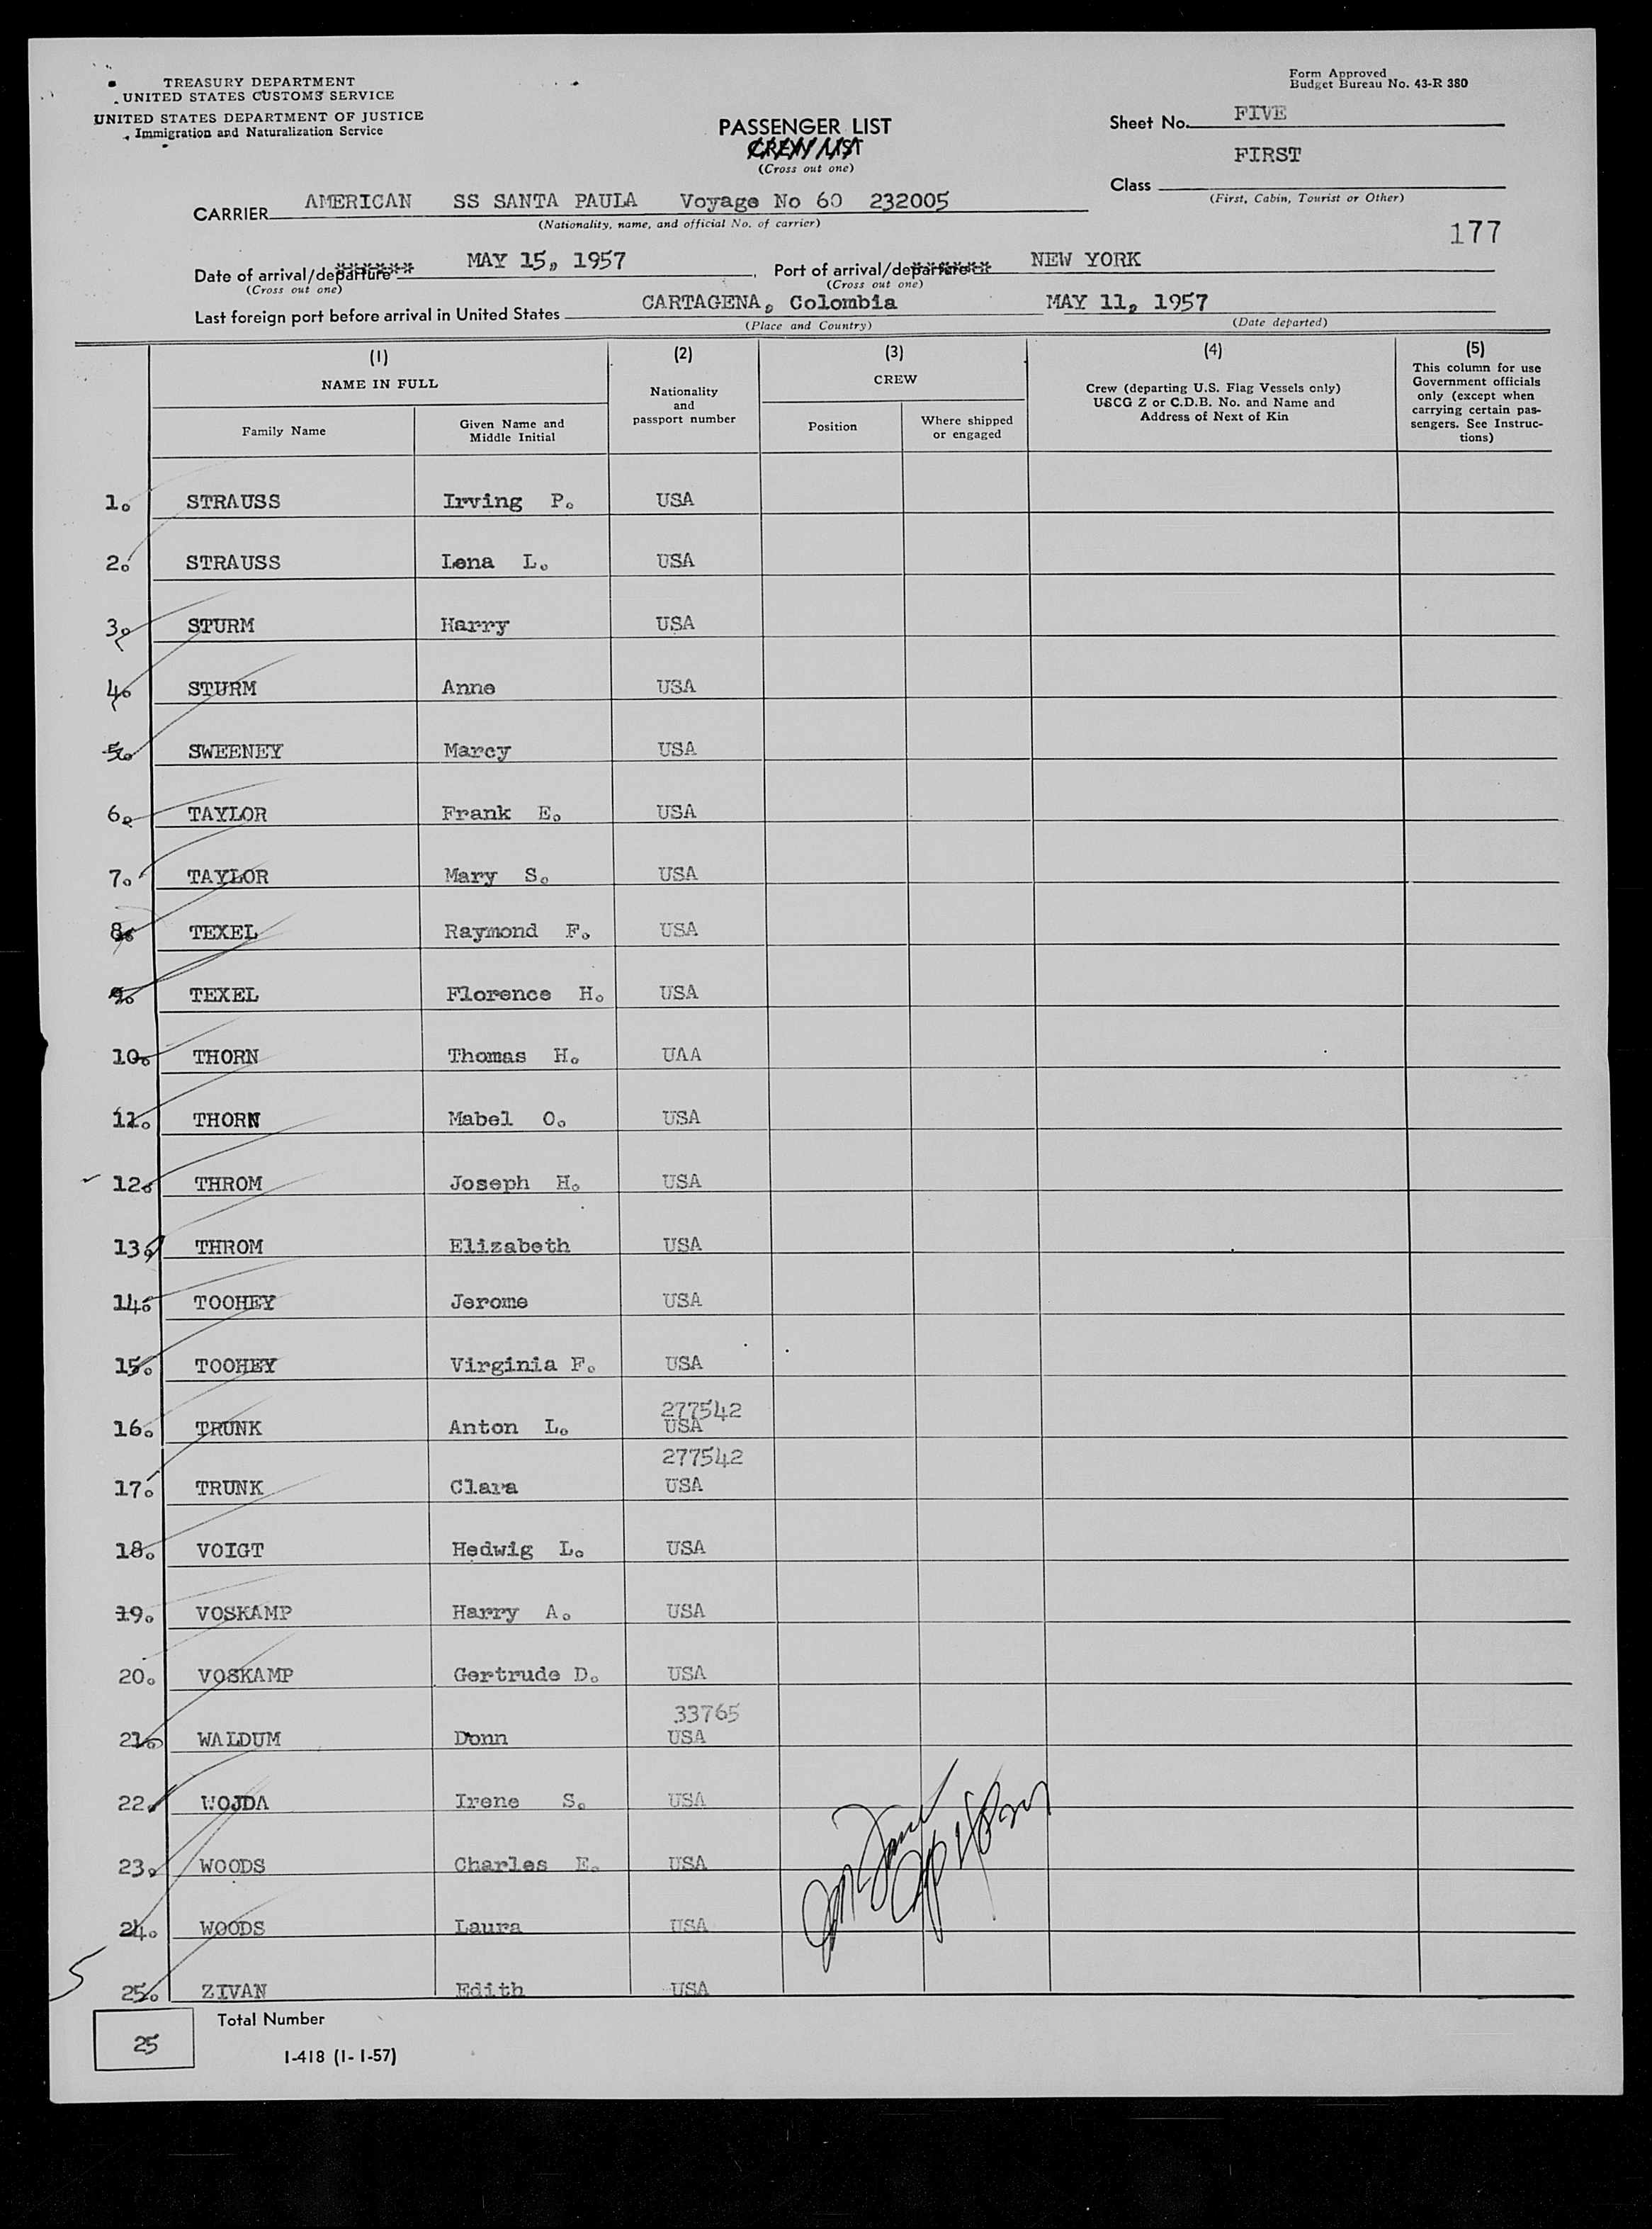 TREASURY DEPARTMENT
UNITED STATES CUSTOMS SERVICE
UNITED STATES DEPARTMENT OF JUSTICE
Immigration and Naturalization Service
Form Approved
Budget Bureau No. 43-R 380
PASSENGER LIST
CREW LIST
(Cross out one)
Sheet No. FIVE
FIRST
Class
(First, Cabin, Tourist or Other)
CARRIER AMERICAN SS SANTA PAULA Voyage No 60 232005
(Nationality, name, and official No. of carrier)
177
Date of arrival/departure MAY 15, 1957 Port of arrival/departure NEW YORK
(Cross out one) (Cross out one)
Last foreign port before arrival in United States CARTAGENA, Colombia MAY 11, 1957
(Place and Country) (Date departed)
(1) (2) (3) (4) (5)
NAME IN FULL
Family Name
Given Name and
Middle Initial
Nationality
and
passport number
CREW
Position
Where shipped
or engaged
Crew (departing U.S. Flag Vessels only)
USCG Z or C.D.B. No. and Name and
Address of Next of Kin
This column for use
Government officials
only (except when
carrying certain pas-
sengers. See Instruc-
tions)
1. STRAUSS Irving P. USA
2. STRAUSS Lena L. USA
3. STURM Harry USA
4. STURM Anne USA
5. SWEENEY Marcy USA
6. TAYLOR Frank E. USA
7. TAYLOR Mary S. USA
8. TEXEL Raymond F. USA
9. TEXEL Florence H. USA
10. THORN Thomas H. UAA
11. THORN Mabel O. USA
12. THROM Joseph H. USA
13. THROM Elizabeth USA
14. TOOHEY Jerome USA
15. TOOHEY Virginia F. USA
277542
16. TRUNK Anton L. USA
277542
17. TRUNK Clara USA
18. VOIGT Hedwig L. USA
19. VOSKAMP Harry A. USA
20. VOSKAMP Gertrude D. USA
33765
21. WALDUM Donn USA
22. WOJDA Irene S. USA
23. WOODS Charles E. USA
24. WOODS Laura USA
5
25. ZIVAN Edith USA
Total Number
25
I-418 (1-1-57)